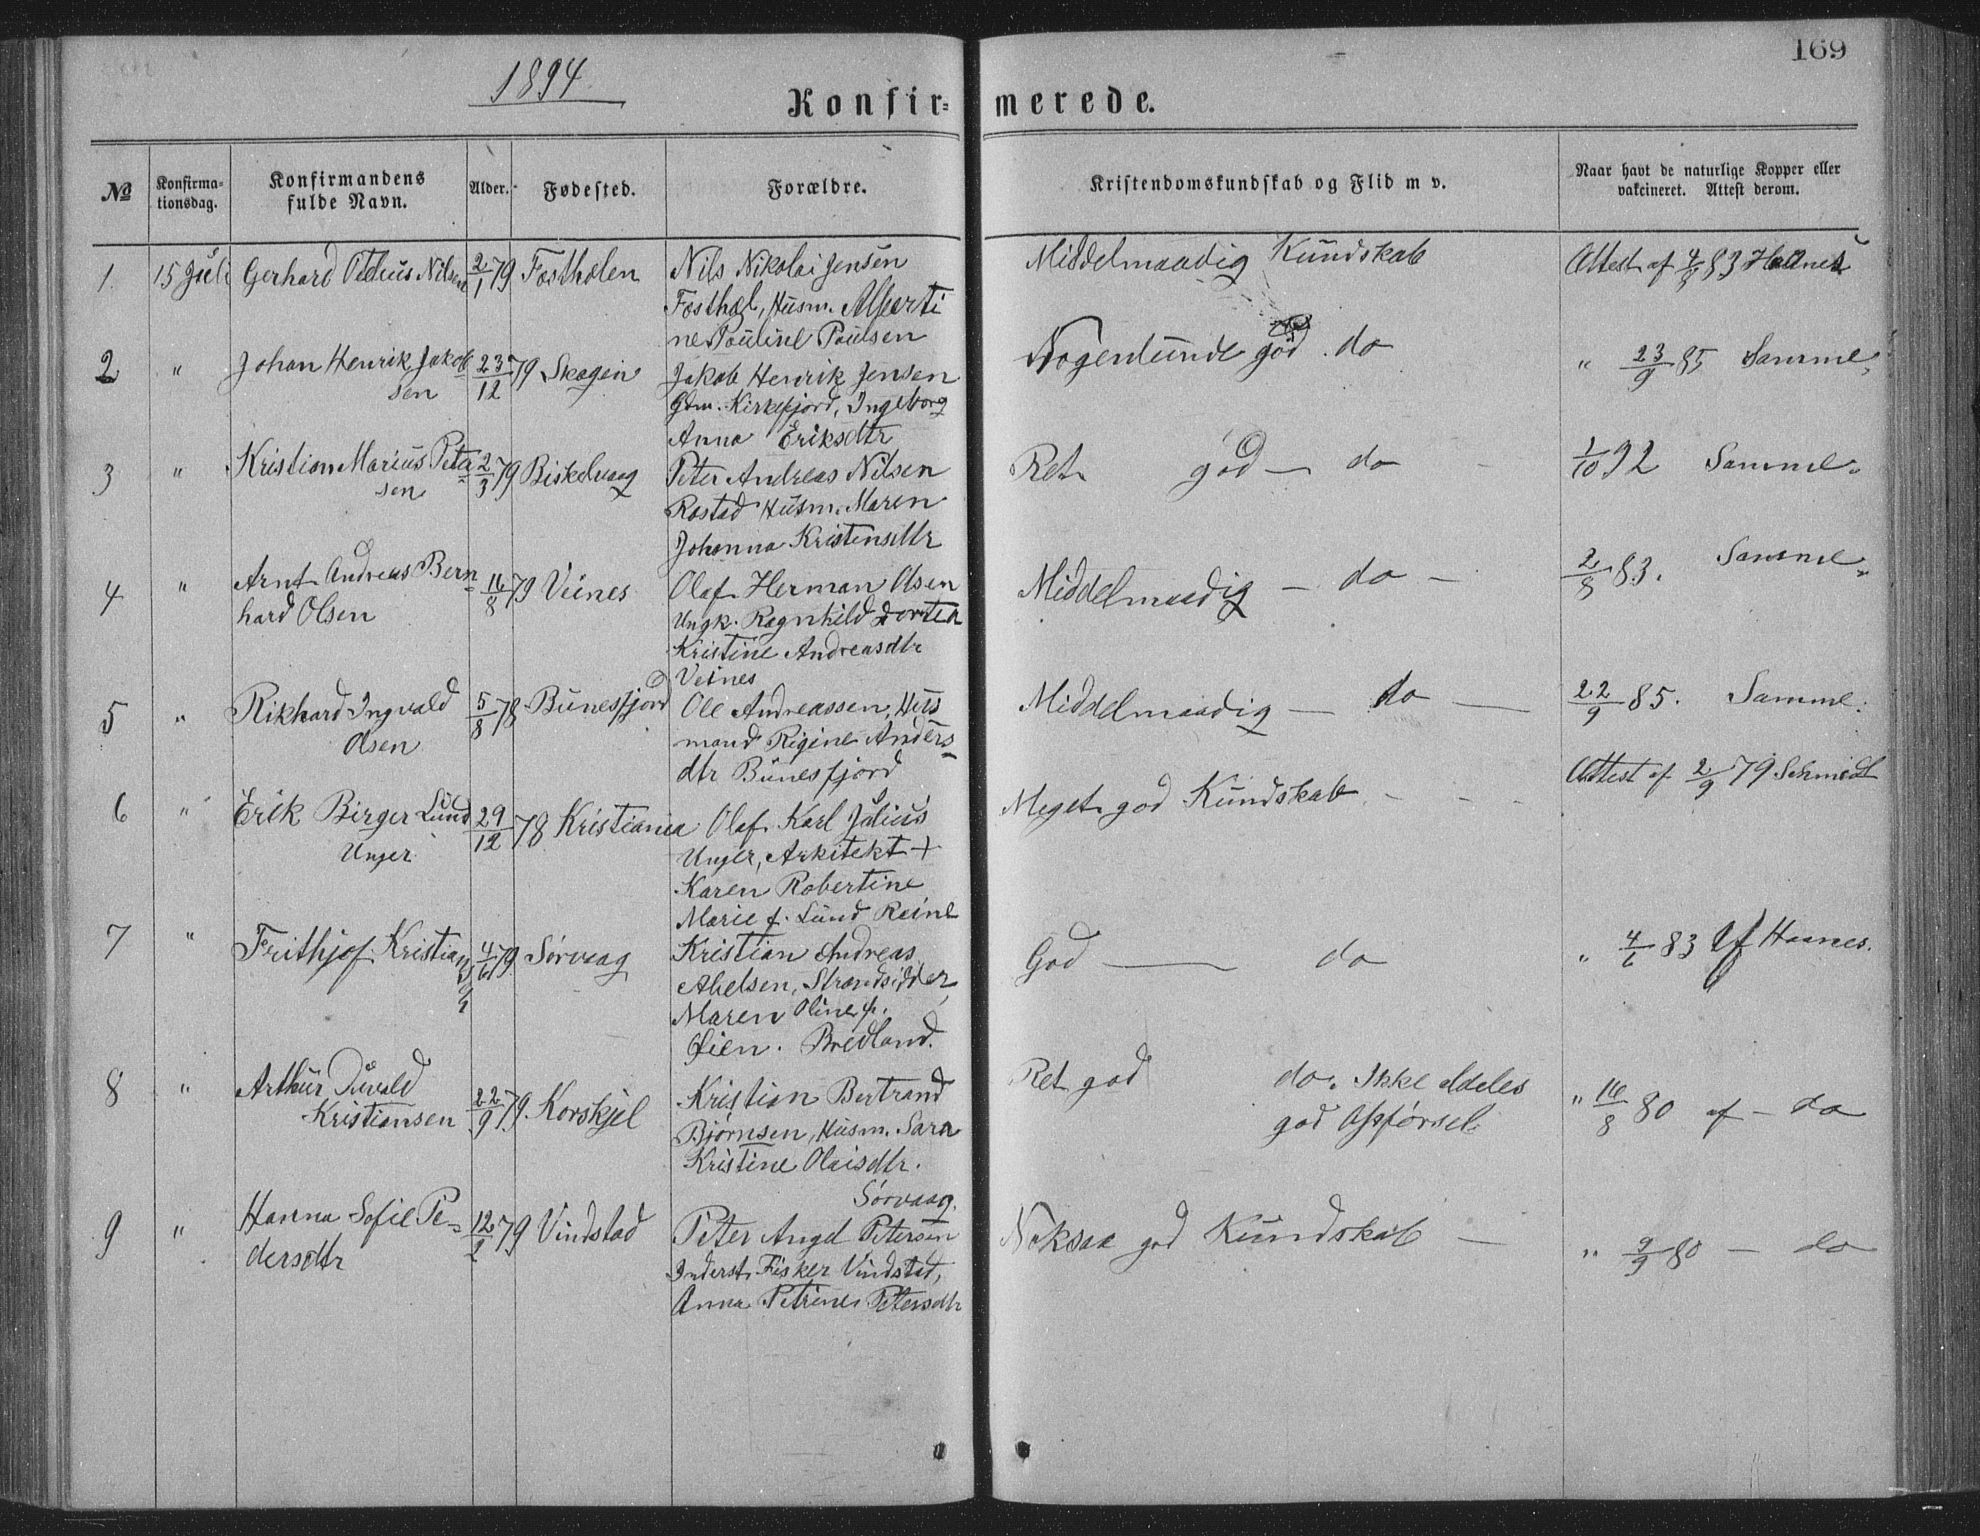 169
1894
Konfir= merede.
№ Konfirma- tionsdag. Konfirmandens fulde Navn. Alder. Fødested. Forældre. Kristendomskundskab og Flid m v. Naar havt de naturlige Kopper eller vakcineret. Attest derom.
1 15 Juli Gerhard Petrus Nilsen 2/1 79 Fostholen Nils Nikolai Jensen Middelmaadig Kundskab Attest af 4/6 83 Haanes
Husm. Alberti
ne Pouline Poulsen
2 " Johan Henrik Jakob 23/12 79 Skogen Jakob Henrik Jensen Nogenlunde god do " 23/9 85 Samme
sen Gdm. Kirkefjord, Ingeborg
Anna Eriksdtr
3 " Kristian Marius Peter= 2/3 79 Biskelvaag Peter Andreas Nilsen Ret god — do 1/10 92 Samme
sen Rostad Husm. Maren
Johanna Kristensdtr
4 " Arnt Andreas Bern= 16/8 79 Veines Olaf Herman Olsen Middelmaadig — do — 2/8 83. Samme
hard Olsen Ungk. Ragnhild Dortea
Kristine Andreasdtr
Veines
5 " Rikhard Ingvald 5/8 78 Bunesfjord Ole Andreassen, Hus Middelmaadig — do — 22/9 85. Samme
Olsen mand Rigine Anders=
dtr Bunesfjord
6 " Erik Birger Lund 29/12 78 Kristiania Olaf Karl Julius Meget god Kundskab - - - Attest af 2/9 79 Schmidt
Unger Unger, Arkitekt +
Karen Robertine
Marie f. Lund Reine
7 " Frithjof Kristian 4/6 79 Sørvaag Kristian Andreas God — do " 4/6 83 af Haanes.
Abelsen, Strandsidder,
Maren Oline f.
Øien. Bredland.
8 " Arthur Duvald 22/9 79. Korskjel Kristian Bertrand Ret god do. Ikke aldeles " 16/8 80 af — do
Kristiansen Bjørnsen, Husm. Sara god Opførsel.
Kristine Olaisdtr.
Sørvaag.
9 " Hanna Sofie Pe= 12/2 79 Vindstad Peter Angel Petersen Noksaa god Kundskab — " 9/9 80 — do
dersdtr Inderst Fisker Vindstad,
Anna Petrine Petersdtr